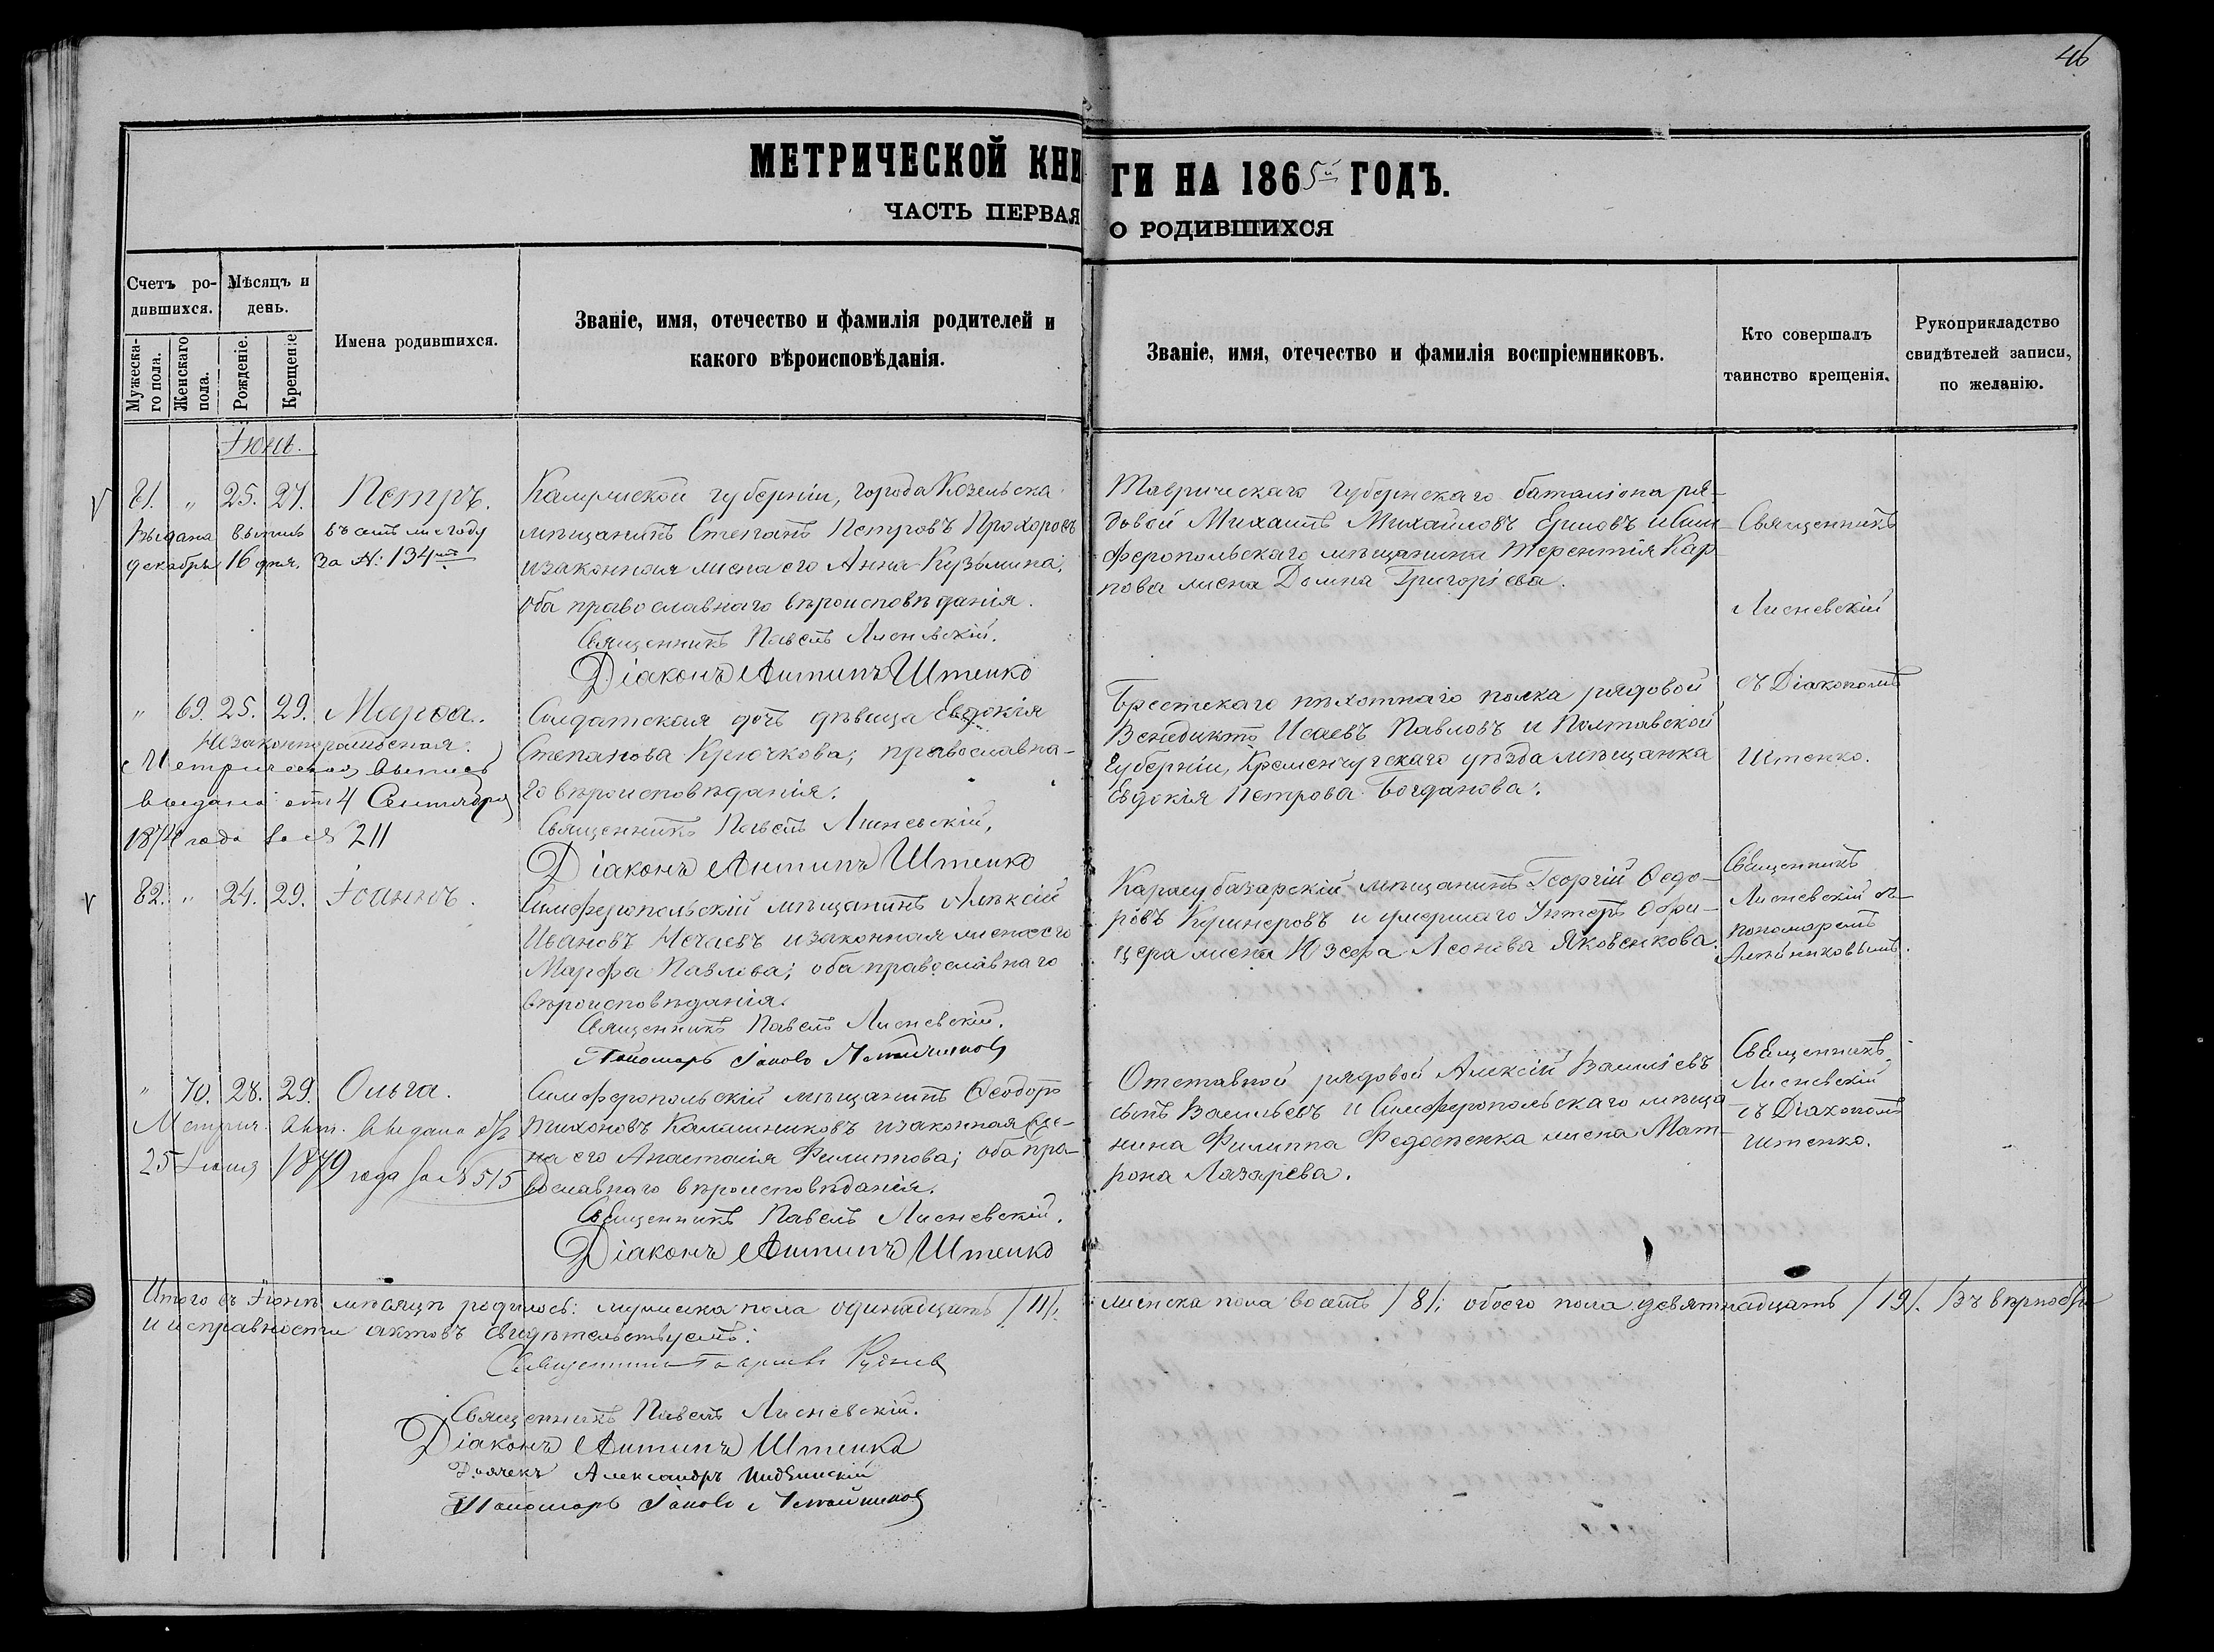 46
МЕТРИЧЕСКОЙ КНИГИ НА 1865й ГОДЪ.
ЧАСТЬ ПЕРВАЯ О РОДИВШИХСЯ
Счетъ родившихся.
Мужескаго пола.
Женскаго пола.
Мѣсяцъ и день.
Рожденіе.
Крещеніе
Имена родившихся.
Званіе, имя, отечество и фамилія родителей и
какого вѣроисповѣданія.
Званіе, имя, отечество и фамилія воспріемниковъ.
Кто совершалъ
таинство крещенія.
Рукоприкладство
свидѣтелей записи,
по желанію.
Іюнь.
81. „ 25. 27. Петръ.
Выдана выпись въ семъ же году
декабря 16 дня, за №: 134
Калужской губерніи, города Козельска
мѣщанинъ Степанъ Петровъ Прохоровъ
и законная жена его Анна Кузьмина;
оба православнаго вѣроисповѣданія.
Священникъ Павелъ Лисневскій.
Діаконъ Антипъ Штепко
Таврическаго губернскаго баталіона ря-
довой Михаилъ Михайловъ Ершовъ и Сим-
феропольскаго мѣщанина Терентія Кар-
пова жена Домна Григорьева.
Священникъ
Лисневскій
съ Діакономъ
Штепко.
„ 69. 25. 29. Марфа.
Незаконнорожденная.
Метрическая выпись
выдана отъ 4 Сентября
1874 года за № 211
Солдатская дочь дѣвица Евдокія
Степанова Крючкова; православна-
го вѣроисповѣданія.
Священникъ Павелъ Лисневскій,
Діаконъ Антипъ Штепко
Брестскаго пѣхотнаго полка рядовой
Венедиктъ Исаевъ Павловъ и Полтавской
Губерніи, Кременчугскаго уѣзда мѣщанка
Евдокія Петрова Богданова.
82. „ 24. 29. Іоаннъ.
Симферопольскій мѣщанинъ Алексій
Ивановъ Нечаевъ и законная жена его
Марфа Павлова; оба православнаго
вѣроисповѣданія.
Священникъ Павелъ Лисневскій.
Пономарь Іаковъ
Карасубазарскій мѣщанинъ Георгій Ѳедо-
ровъ Кушнеровъ и умершаго Унтеръ Офи-
цера жена Іозефа Леонова Яковенкова.
Священникъ
Лисневскій съ
пономаремъ
„ 70. 28. 29. Ольга.
Метрич. вып. выдана
25 Іюня 1879 года за № 515
Симферопольскій мѣщанинъ Ѳеодоръ
Тихоновъ Калашниковъ и законная же-
на его Анастасія Филиппова; оба пра-
вославнаго вѣроисповѣданія.
Священникъ Павелъ Лисневскій.
Діаконъ Антипъ Штепко
Отставной рядовой Алексій Васильевъ
сынъ Васильевъ и Симферопольскаго мѣща-
нина Филиппа Федосенка жена Мат-
рона Лазарева.
Священникъ
Лисневскій
съ Діакономъ
Штепко.
Итого въ Іюнѣ мѣсяцѣ родилось: мужеска пола одинадцать /11/. женска пола восемь /8/; обоего пола девятнадцать /19/. Въ вѣрности
и исправности актовъ свидѣтельствуемъ:
Священникъ
Священникъ Павелъ Лисневскій.
Діаконъ Антипъ Штепко
Дьячекъ Александръ
Пономарь Іаковъ